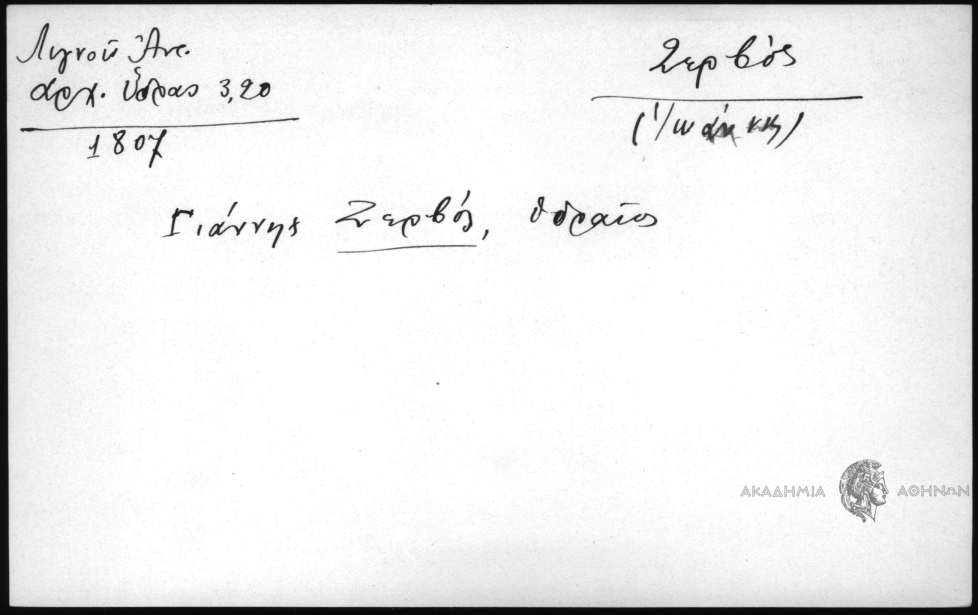 Λιγνοῦ Ἀντ.
ἀρχ. Ὕδρας 3,20
1807
Σερβός
(Ἰωάννης)
Γιάννης Σερβός, Ὑδραῖος
ΑΚΑΔΗΜΙΑ ΑΘΗΝΩΝ